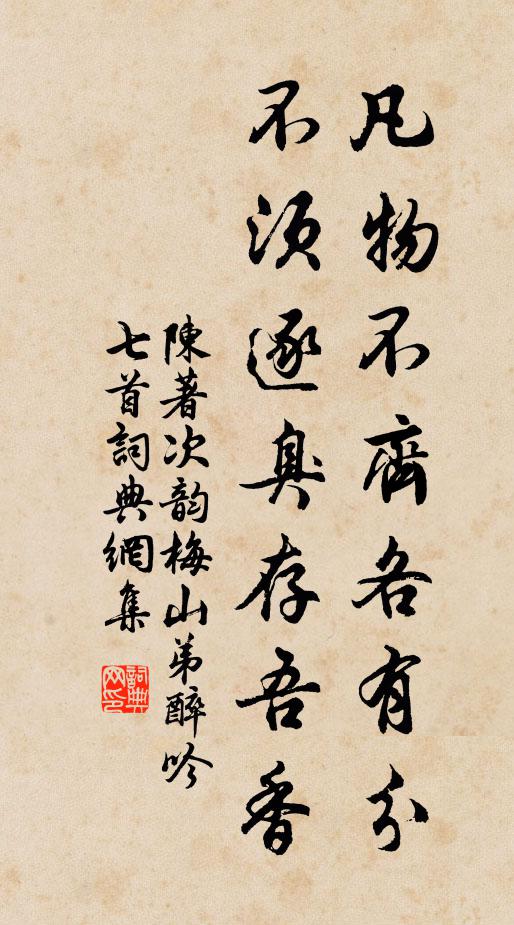 凡物不齊各有分
不須逐臭存吾香
陳著次韵梅山弟醉吟
七首詞典網集
詞典網印